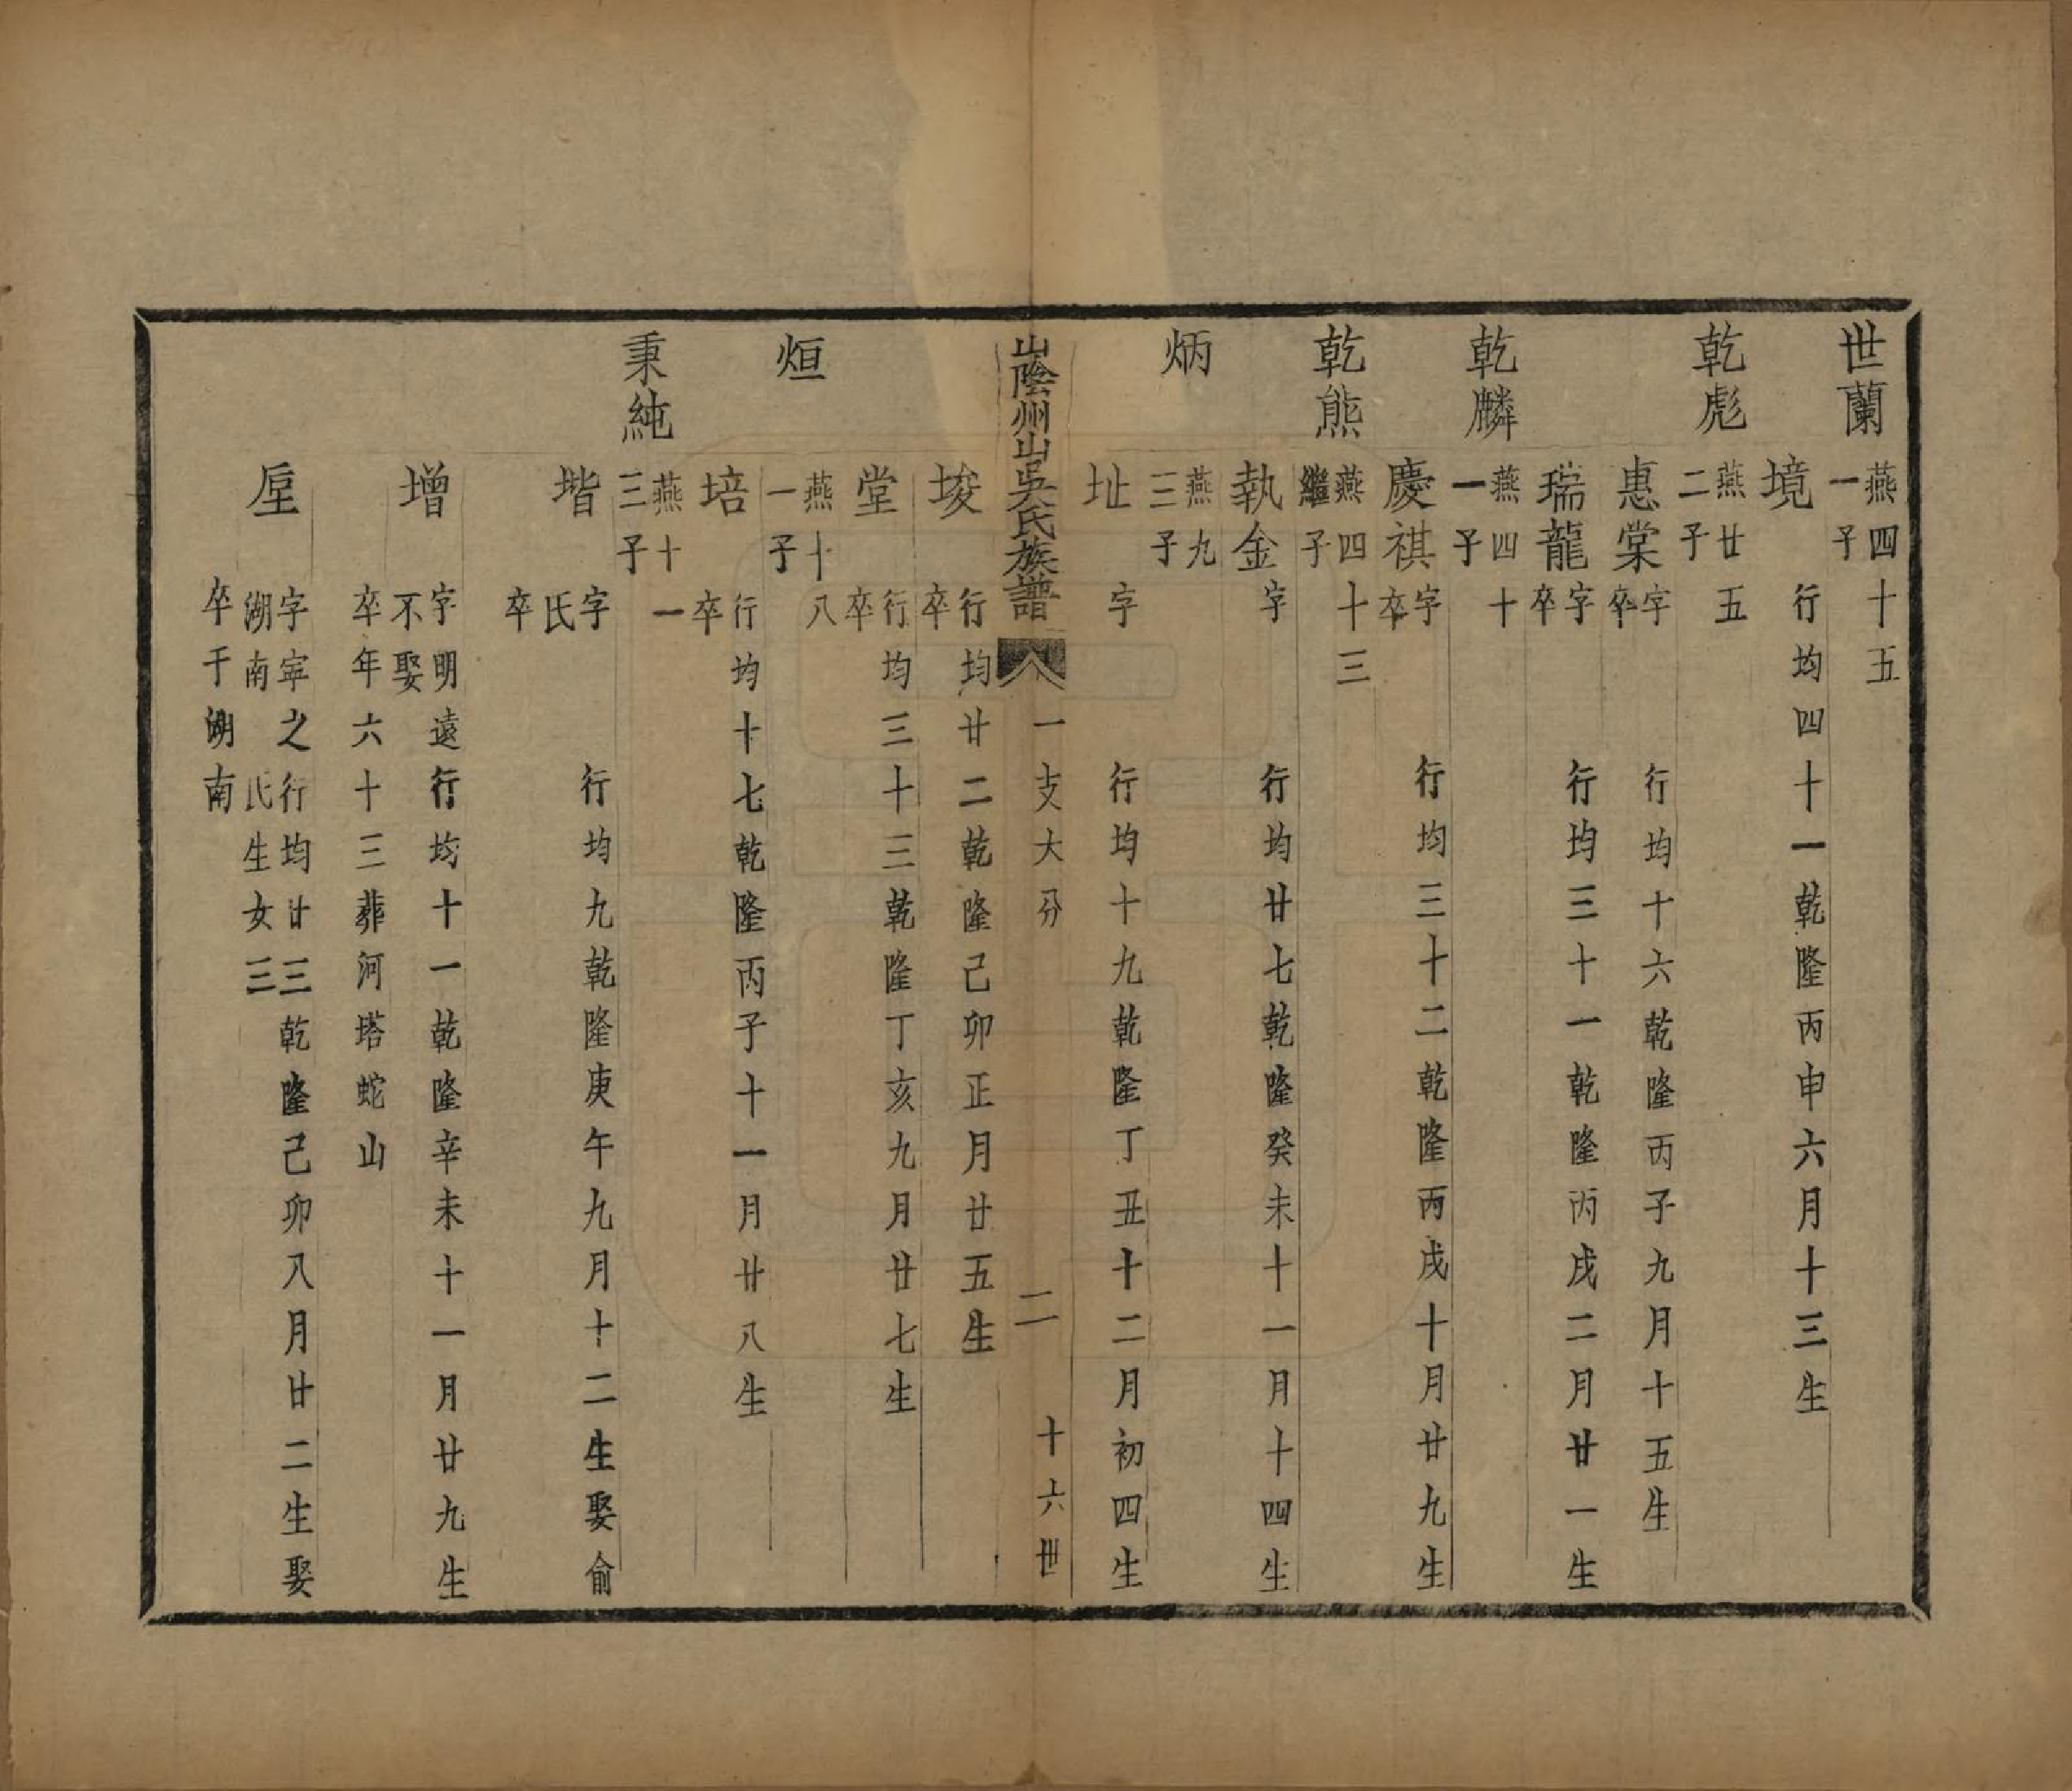 世蘭
燕四十五
一子
境
行均四十一乾隆丙申六月十三生
乾彪
燕廿五
二子
惠棠
字　行均十六乾隆丙子九月十五生
卒
瑞龍
字　行均三十一乾隆丙戌二月廿一生
卒
乾麟
燕四十
一子
慶祺
字　行均三十二乾隆丙戌十月廿九生
卒
乾熊
燕四十三
繼子
執金
字　行均廿七乾隆癸未十一月十四生
炳
燕九
三子
址
字　行均十九乾隆丁丑十二月初四生
山陰州山吳氏族譜
一支大分
二
十六世
埈
行均廿二乾隆己卯正月廿五生
卒
堂
行均三十三乾隆丁亥九月廿七生
卒
烜
燕十八
一子
培
行均十七乾隆丙子十一月廿八生
卒
秉純
燕十一
三子
堦
字　行均九乾隆庚午九月十二生娶俞
氏
卒
增
字明遠行均十一乾隆辛未十一月廿九生
不娶
卒年六十三葬河塔蛇山
垕
字宰之行均廿三乾隆己卯八月廿二生娶
湖南　氏生女三
卒于湖南